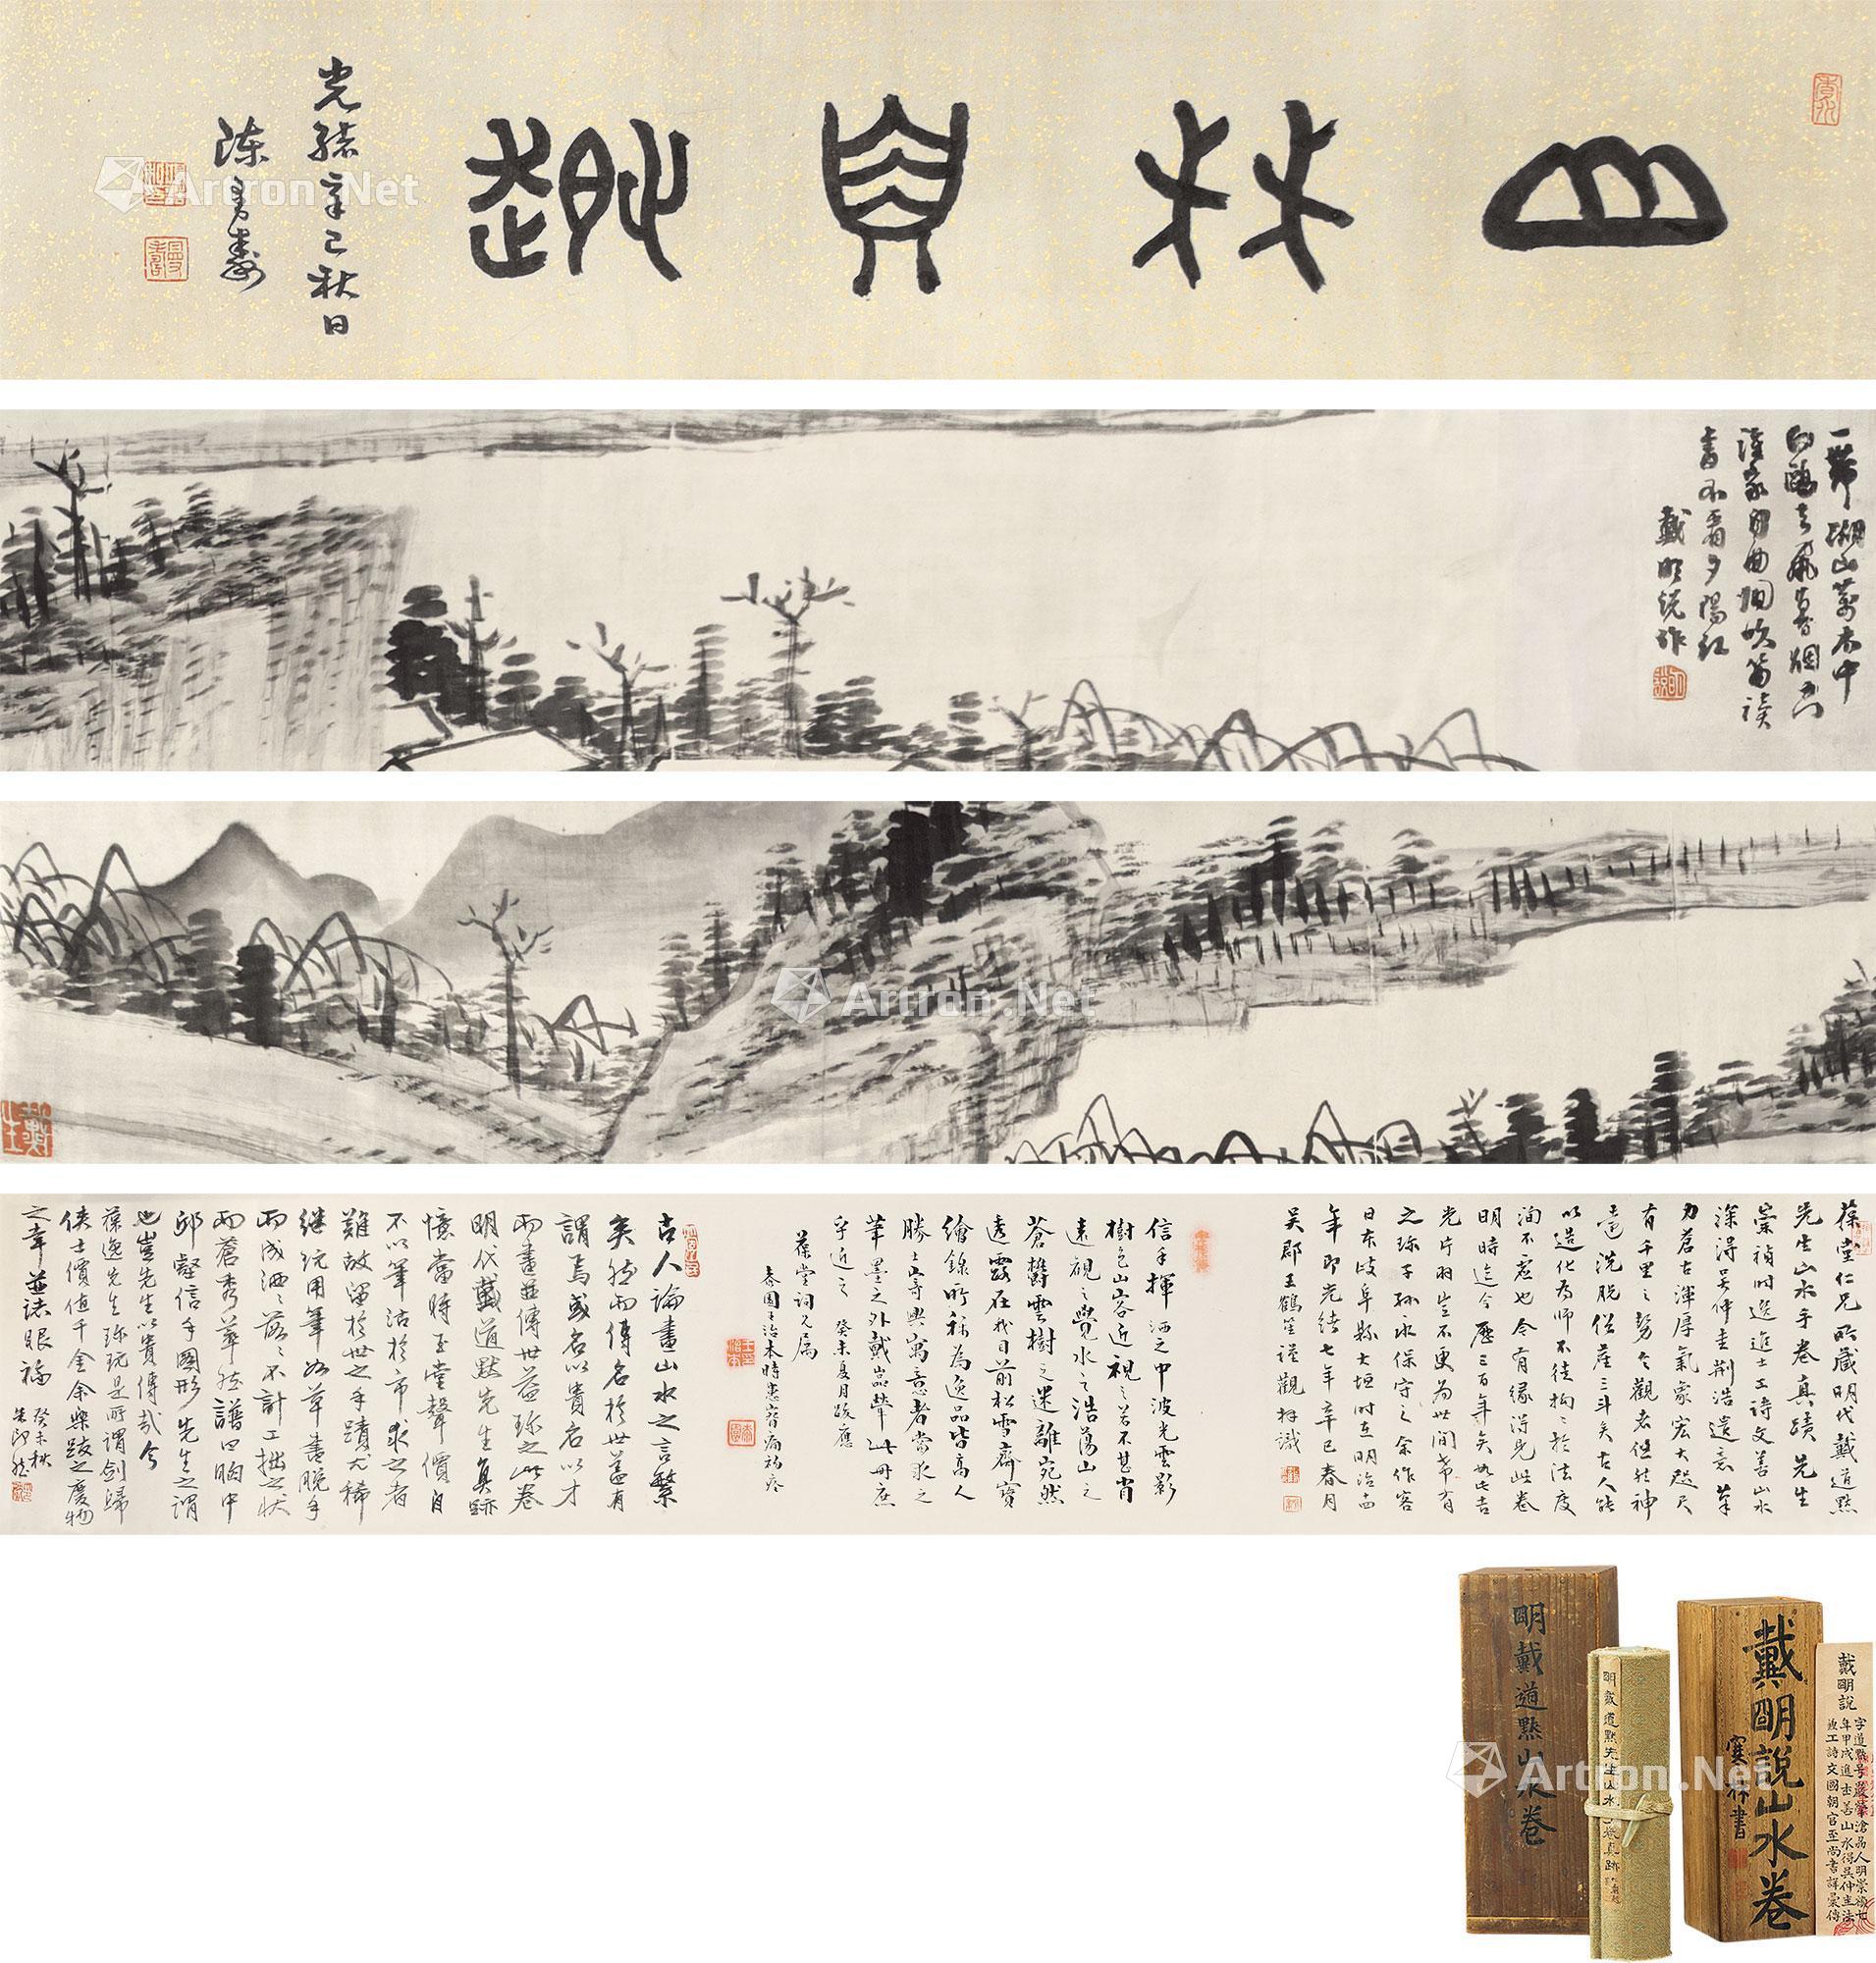 山林真趣
光緒辛巳秋日
陳曼壽
一帶湖山萬木中
白鷗去飛
漁家曲吹笛讀
書不看夕陽紅
戴明說作
葆堂仁兄所藏明代戴道默
先生山水手卷真蹟先生
崇禎時進士工詩文善山水
深得吳仲圭荊浩遺意筆
力蒼古渾厚氣象宏大咫尺
有千里之勢令觀者但於神
洗脫俗塵三斗矣古人能
以造化為師不徒拘於法度
洵不虛也今有緣得見此卷
明時迄今歷三百年矣此吉
光片羽豈不更為世間希有
之珍子孫永保守之余作客
日本岐阜縣大垣時在明治十四
年即光緒七年辛巳春月
吳郡王鶴笙謹觀拜識
信手揮洒之中波光雲影
樹色山容近視之若不甚肖
遠觀之覺水之浩蕩山之
蒼欝雲樹之迷離宛然
透露在我目前松雪齋寶
繪錄所稱為逸品皆高人
勝士寄興寓意者當求之
筆墨之外戴嵒犖此冊庶
乎近之 癸未夏月跋應
葆堂詞兄屬
泰園王治本時患痔病初疼
古人論畫山水之言繁
矣然而傳名於世蓋有
謂焉或名以貴名以才
而畫並傳世益珍之此卷
明代戴道默先生真跡
憶當時至堂聲價自
不以筆沽於市求之者
難故留於世之手蹟尤稀
繼玩用筆如草書脫手
而成洒洒落落不計工拙之狀
而蒼秀華然譜四晌中
邱壑信手圖形先生之謂
也豈先生以貴傳哉今
葆逸先生珍玩是所謂劍歸
俠士價值千金余樂跋之慶物
之幸並誌眼福 癸未秋
朱印然
明戴道默山水卷
明戴道默先生山水手卷真跡
戴明說山水卷
寞林書
戴明說
字道默號巖犖滄易人明崇禎廿
年甲戌進士善山水得吳仲圭法
並工詩文國朝官至尚書詳畧傳
Artron.Net
Artron.Net
Artron.Net